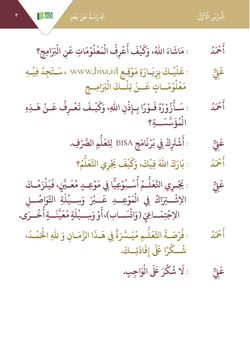 الدَّرْسُ الْأَوَّلُ
الدِّرَاسَةُ عَنْ بُعْدٍ
٣
أَحْمَدُ : مَاشَاءَ اللهُ، وَكَيْفَ أَعْرِفُ الْمَعْلُوْمَاتِ عَنِ الْبَرَامِجِ؟
عَلِيٌّ : عَلَيْكَ بِزِيَارَةِ مَوْقِعِ www.bisa.id ، سَتَجِدُ فِيْهِ
مَعْلُوْمَاتٍ عَنْ تِلْكَ الْبَرَامِجِ
أَحْمَدُ : سَأَزُوْرُهُ فَوْرًا بِإِذْنِ اللهِ، وَكَيْفَ تَعْرِفُ عَنْ هَذِهِ
الْمُؤَسَّسَةِ؟
عَلِيٌّ : أَشْتَرِكُ فِي بَرْنَامَجِ BISA لِتَعَلُّمِ الصَّرْفِ.
أَحْمَدُ : بَارَكَ اللهُ فِيْكَ، وَكَيْفَ يَجْرِي التَّعَلُّمُ؟
عَلِيٌّ : يَجْرِي التَّعَلُّمُ أُسْبُوْعِيًّا فِي مَوْعِدٍ مُعَيَّنٍ، فَيَلْزَمُكَ
الِاشْتِرَاكُ فِي الْمَوْعِدِ عَبْرَ وَسِيْلَةِ التَّوَاصُلِ
الِاجْتِمَاعِيِّ (وَاتْسَابْ)، أَوْ وَسِيْلَةٍ مُعَيَّنَةٍ أُخْرَى.
أَحْمَدُ : فُرْصَةُ التَّعَلُّمِ مُيَسَّرَةٌ فِي هَذَا الزَّمَانِ وَ لِلهِ الْحَمْدُ،
شُكْرًا عَلَى إِفَادَتِكَ.
عَلِيٌّ : لَا شُكْرَ عَلَى الْوَاجِبِ.